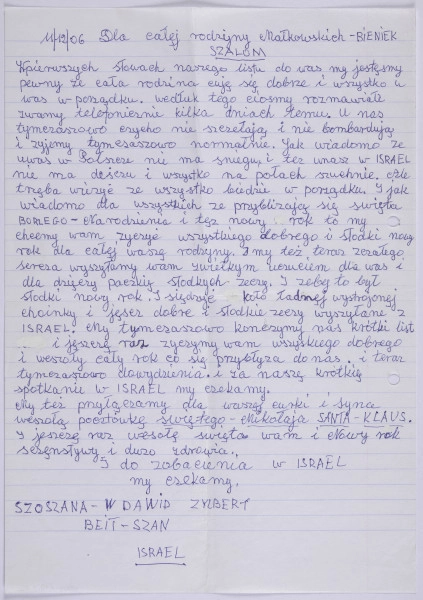 11/12/06 Dla całej rodziny Małkowskich-BIENIEK
SZALOM
W pierwszych słowach naszego listu do was my jesteśmy
pewny że cała rodzina czuję się dobrze i wszystko u
was w porządku. wedłuk tego ciosmy rozmawiale
zwamy telefonicznie kilka dniach temu. U nas
tymczaszowo cicho nie szczelają i nie bombardują
i żyjemy tymczaszowo normalnie. Jak wiadomo że
uwas w Polszce nie ma śniegu i też unasz w ISRAEL
nie ma deszczu i wszystko na polach szuchnie, ale
trzęba wieżyć że wszystko biedzie w porządku. I jak
wiadomo dla wszystkich że przybliżają się swięta
BORLEGO-Narodzienia i też nowy rok to my
chcemy wam życzyć wszystkiego dobrego i słodki nowy
rok dla całej waszę rodziny. I my też teraz zcałego
serca wyszyłamy wam zwielkym uczuciem dla was i
dla dzieży paczkię słodkych żeczy. I żeby to był
słodki nowy rok. I siędzię koło ładnej wystrojonej
choinky i jeszcz dobre i słodkie żeczy wyszłane z
ISRAEL. My tymczaszowo konczymy nas krótki list
i jeszczę raz życzymy wam wszyskiego dobrego
i weszoły cały rok co się przybłyża do nas. i teraz
tymczaszowo dowydzenia. i za naszę krótkię
spotkanie w ISRAEL my czekamy.
My też przyłączamy dla waszęj curki i syna
weszołą pocztówkę swiętego-Mikołaja SANTA-KLAUS.
I jeszczę raz wesołę święta wam i Nowy rok
sczęnsływy i dużo zdrowia.
I do zobaczenia w ISRAEL
my czekamy.
SZOSZANA-W DAWID ZYLBERT
BEIT-SZAN
ISRAEL